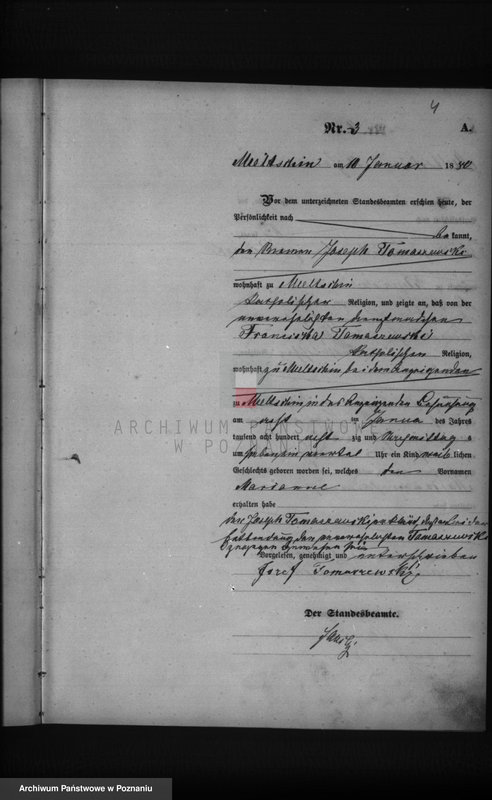 4
Nr. 3
A.
Meltschin am 10 Januar 1880
Vor dem unterzeichneten Standesbeamten erschien heute, der
Persönlichkeit nach
be kannt,
den Joseph Tomaszewski
wohnhaft zu Meltschin
katholischer Religion, und zeigte an, daß von der
unverehelichten Dienstmädchen
Franciska Tomaszewski
katholischen Religion,
wohnhaft zu Meltschin bei dem Anzeigenden
ARCHIWUM PAŃSTWOWE
W POZNANIU
zu Meltschin in des Anzeigenden Behausung
am acht ten Januar des Jahres
tausend acht hundert acht zig und Vormittag s
um Uhr ein Kind weib lichen
Geschlechts geboren worden sei, welches den Vornamen
Marianne
erhalten habe
der Joseph Tomaszewski erklärt, daß er bei der
Entbindung der unverehelichten Tomaszewski
zugegen gewesen sei
Vorgelesen, genehmigt und unterschrieben
Józef Tomaszewski
Der Standesbeamte.
Archiwum Państwowe w Poznaniu
Archiwum Państwowe w Poznaniu